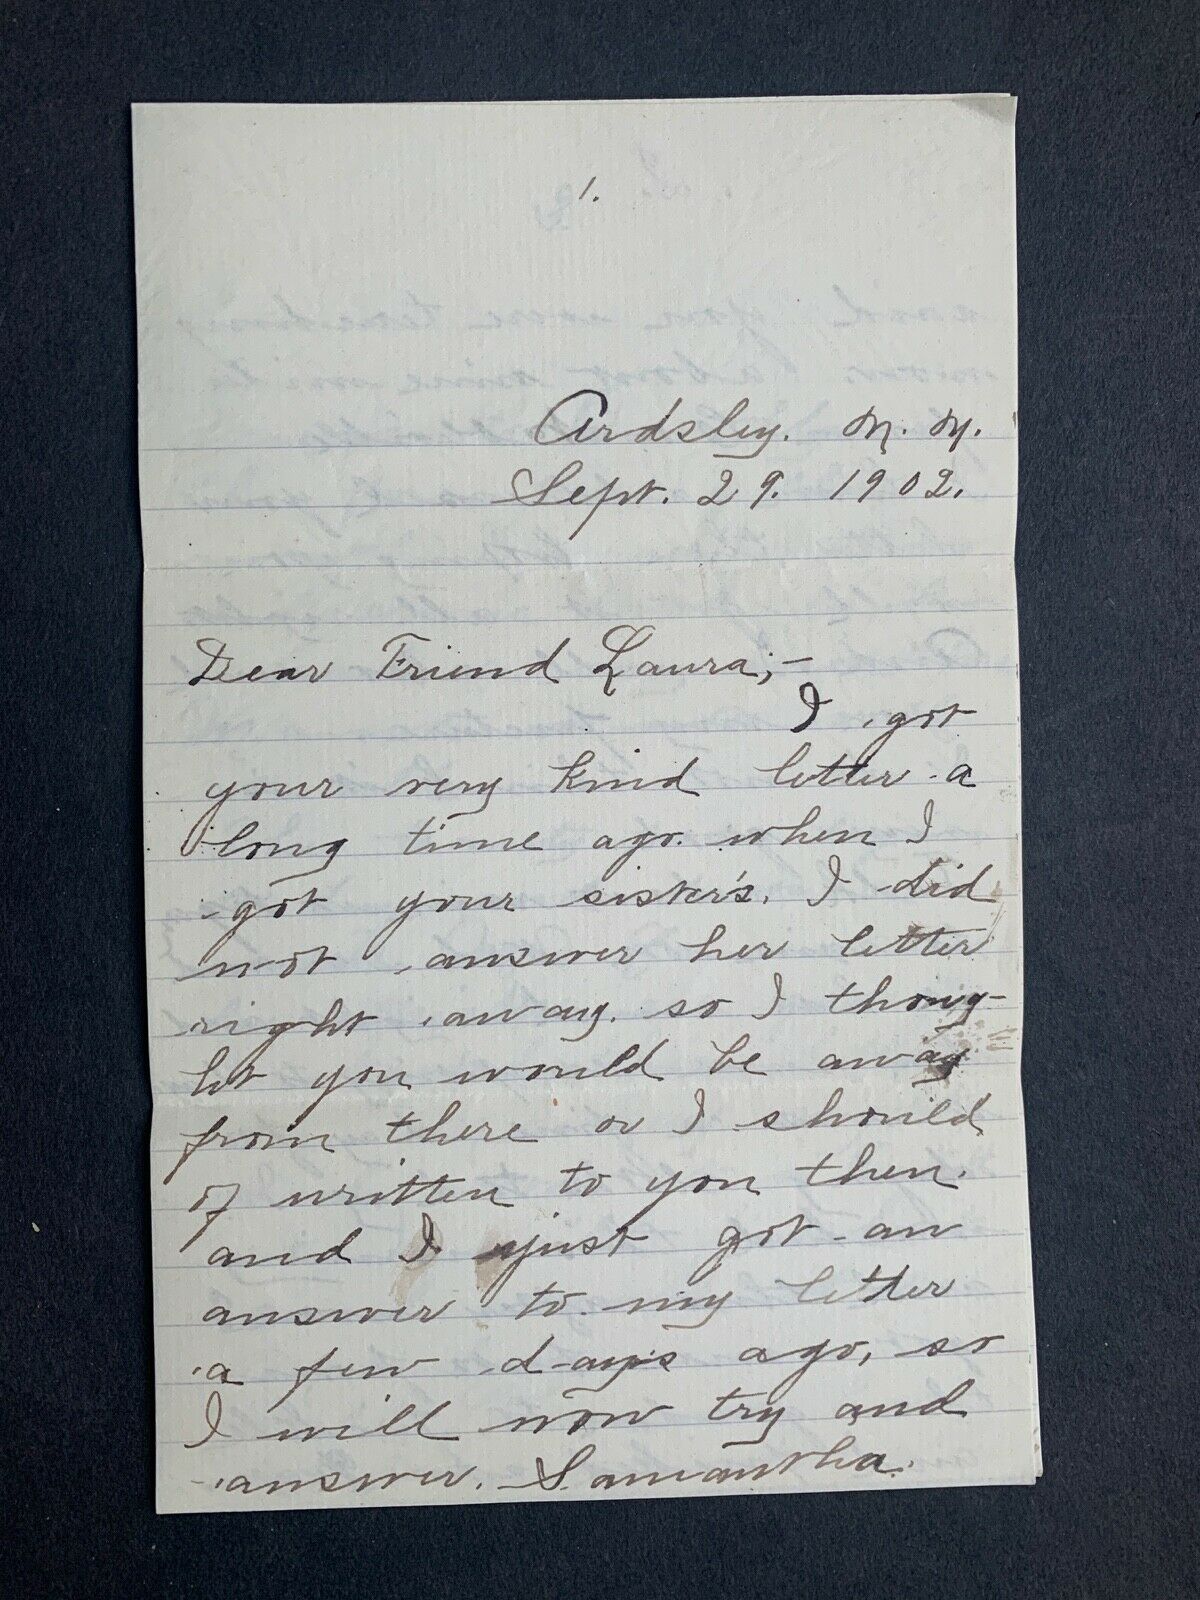 1.
Ardsley. N. Y.
Sept. 29. 1902.
Dear Friend Laura;—
I got
your very kind letter a
long time ago. when I
got your sister's. I did
not answer her letter
right away. so I thoug-
ht you would be away
from there or I should
of written to you then.
and I just got an
answer to my letter
a few days ago, so
I will now try and
answer. Samantha.